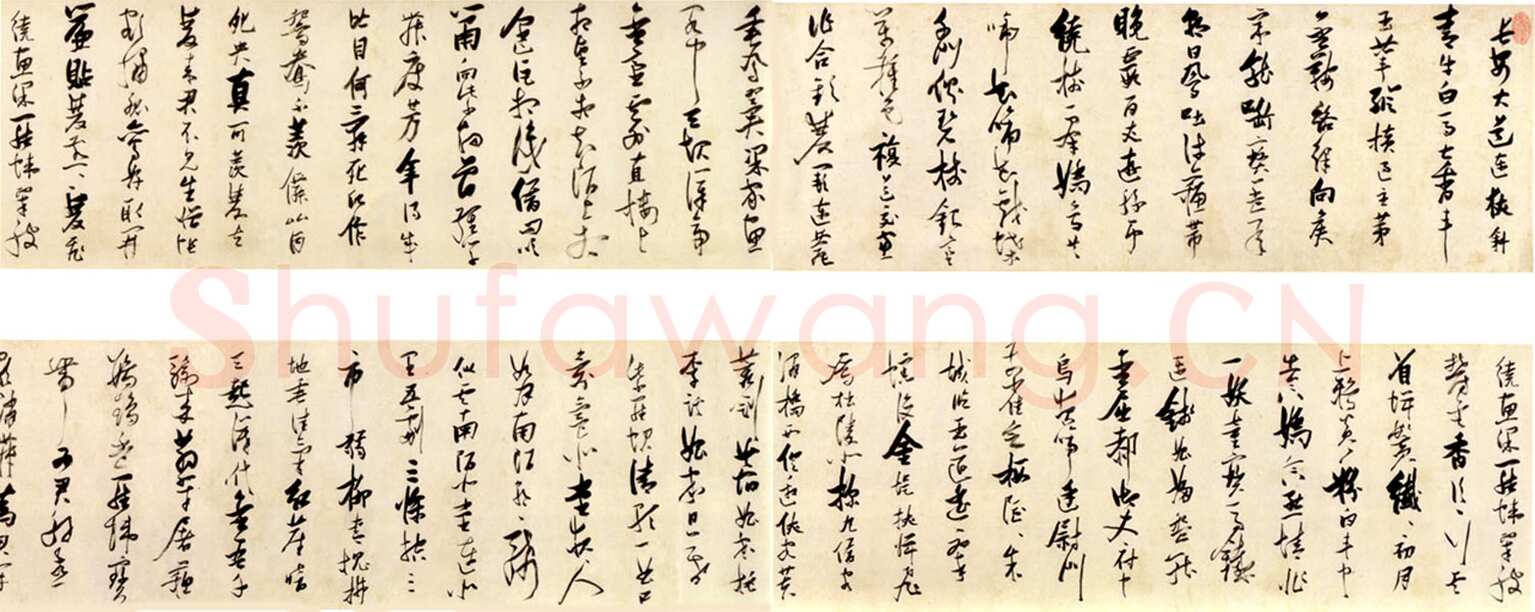 長安大道連狹斜
青牛白馬七香車
玉輦縱橫過主第
金鞭絡繹向侯
家龍銜寶蓋承
朝日鳳吐流蘇帶
晚霞百丈遊絲爭
繞樹一群嬌鳥共
啼花啼花戲蝶
千門側碧樹銀臺
萬種色複道交窗
作合歡雙闕連甍
垂鳳翼梁家畫
閣中天起漢帝
金莖雲外直樓前
相望不相知陌上相
逢詎相識借問吹
簫向紫煙曾經學
舞度芳年得成
比目何辭死願作
鴛鴦不羨仙比目
鴛鴦真可羨雙去
雙來君不見生憎帳
額繡孤鸞好取門
簾帖雙燕雙燕雙飛
繞畫梁羅幃翠被
繞畫梁羅幃翠被
鬱金香片片行雲
著蟬鬢纖纖初月
上鴉黃鴉黃粉白車中
出含嬌含態情非
一妖童寶馬鐵
連錢娼婦盤龍
金屈膝御史府中
烏夜啼廷尉門
前雀欲棲隱隱朱
城臨玉道遙遙翠
幰沒金堤挾彈飛
鷹杜陵北探丸借客
渭橋西俱邀俠客芙
蓉劍共宿娼家桃
李蹊娼家日暮
紫羅裙清歌一囀口
氛氳北堂夜夜人
如月南陌朝朝騎
似雲南陌北堂連北
里五劇三條控三
市弱柳青槐拂
地垂佳氣紅塵暗
天起漢代金吾千
騎來翡翠屠蘇
鸚鵡杯羅襦寶
帶為君解燕
Shufawang.CN